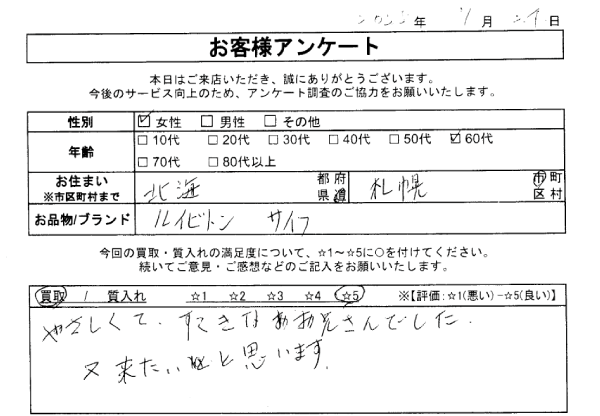 2022年 7月 29日
お客様アンケート
本日はご来店いただき、誠にありがとうございます。
今後のサービス向上のため、アンケート調査のご協力をお願いいたします。
性別 ☑女性 □男性 □その他
年齢 □10代 □20代 □30代 □40代 □50代 ☑60代
□70代 □80代以上
お住まい ※市区町村まで 北海 都府県道 札幌 市町区村
お品物/ブランド ルイビトン サイフ
今回の買取・質入れの満足度について、☆1～☆5に○を付けてください。
続いてご意見・ご感想などのご記入をお願いいたします。
買取 / 質入れ ☆1 ☆2 ☆3 ☆4 ☆5 ※【評価:☆1(悪い)−☆5(良い)】
やさしくて、すてきなお兄さんでした.
又来たいと思います.